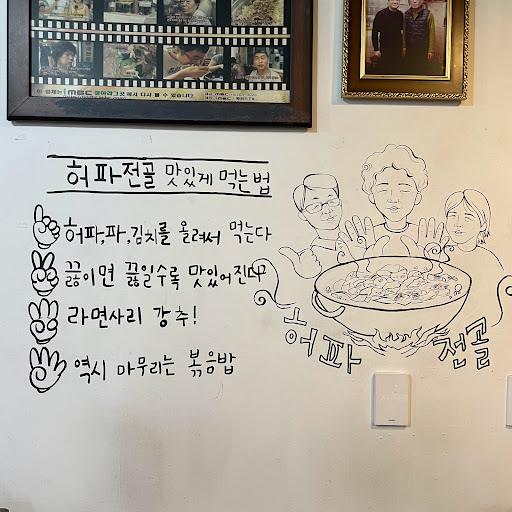 허파전골 맛있게 먹는 법
허파,파,김치를 올려서 먹는다
끓이면 끓일수록 맛있어진다
라면사리 강추!
역시 마무리는 볶음밥
허파 전골